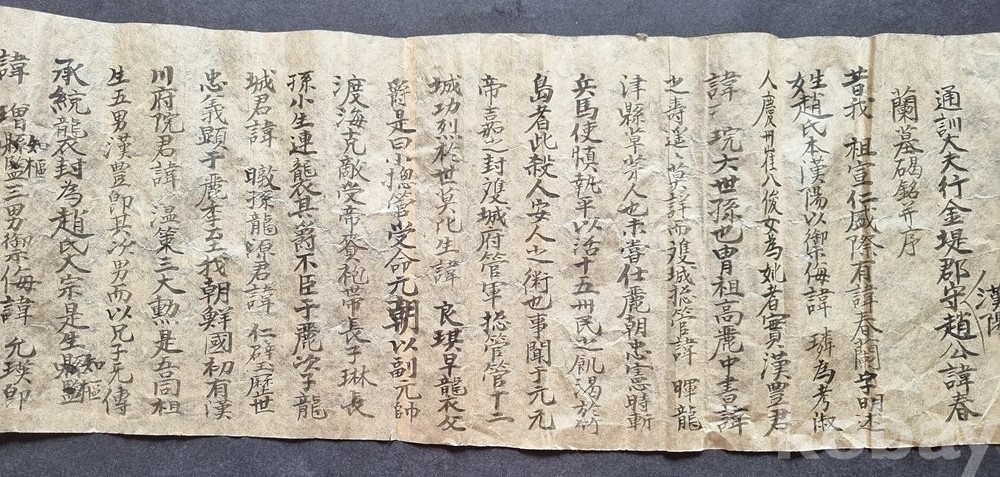 漢陽
通訓大夫行金堤郡守趙公諱春
蘭墓碣銘幷序
昔我 祖宣仁盛際有諱春蘭字明述
姓趙氏本漢陽以御宗侮諱 璘為考淑
人慶州崔八俊女為妣者實漢豊君
諱 琓大世孫也胄祖高麗中書諱
之壽遥〻莫詳而雙城摠管諱 暉龍
津縣草芽人也嘗仕麗朝忠憲時斬
兵馬使愼執平以活十五州民之飢渴於竹
島者此殺人安人之術也事聞于元元
帝嘉之封雙城府管軍摠管管十二
城功烈於世莫比生諱 良琪早襲父
爵是曰小摠管受命元朝以副元帥
渡海克敵受帝賚袍帶長子琳長
孫小生連襲其爵不臣于麗次子龍
城君諱 暾孫龍源君諱 仁璧歷世
忠義顯于麗季至我朝鮮國初有漢
川府院君諱 溫策三大勳是吾同祖
生五男漢豊卽其次男而以兄子无傳
承統襲封為趙氏大宗是生 知樞
諱 知樞三男御宗侮諱 允瑛卽
kobay